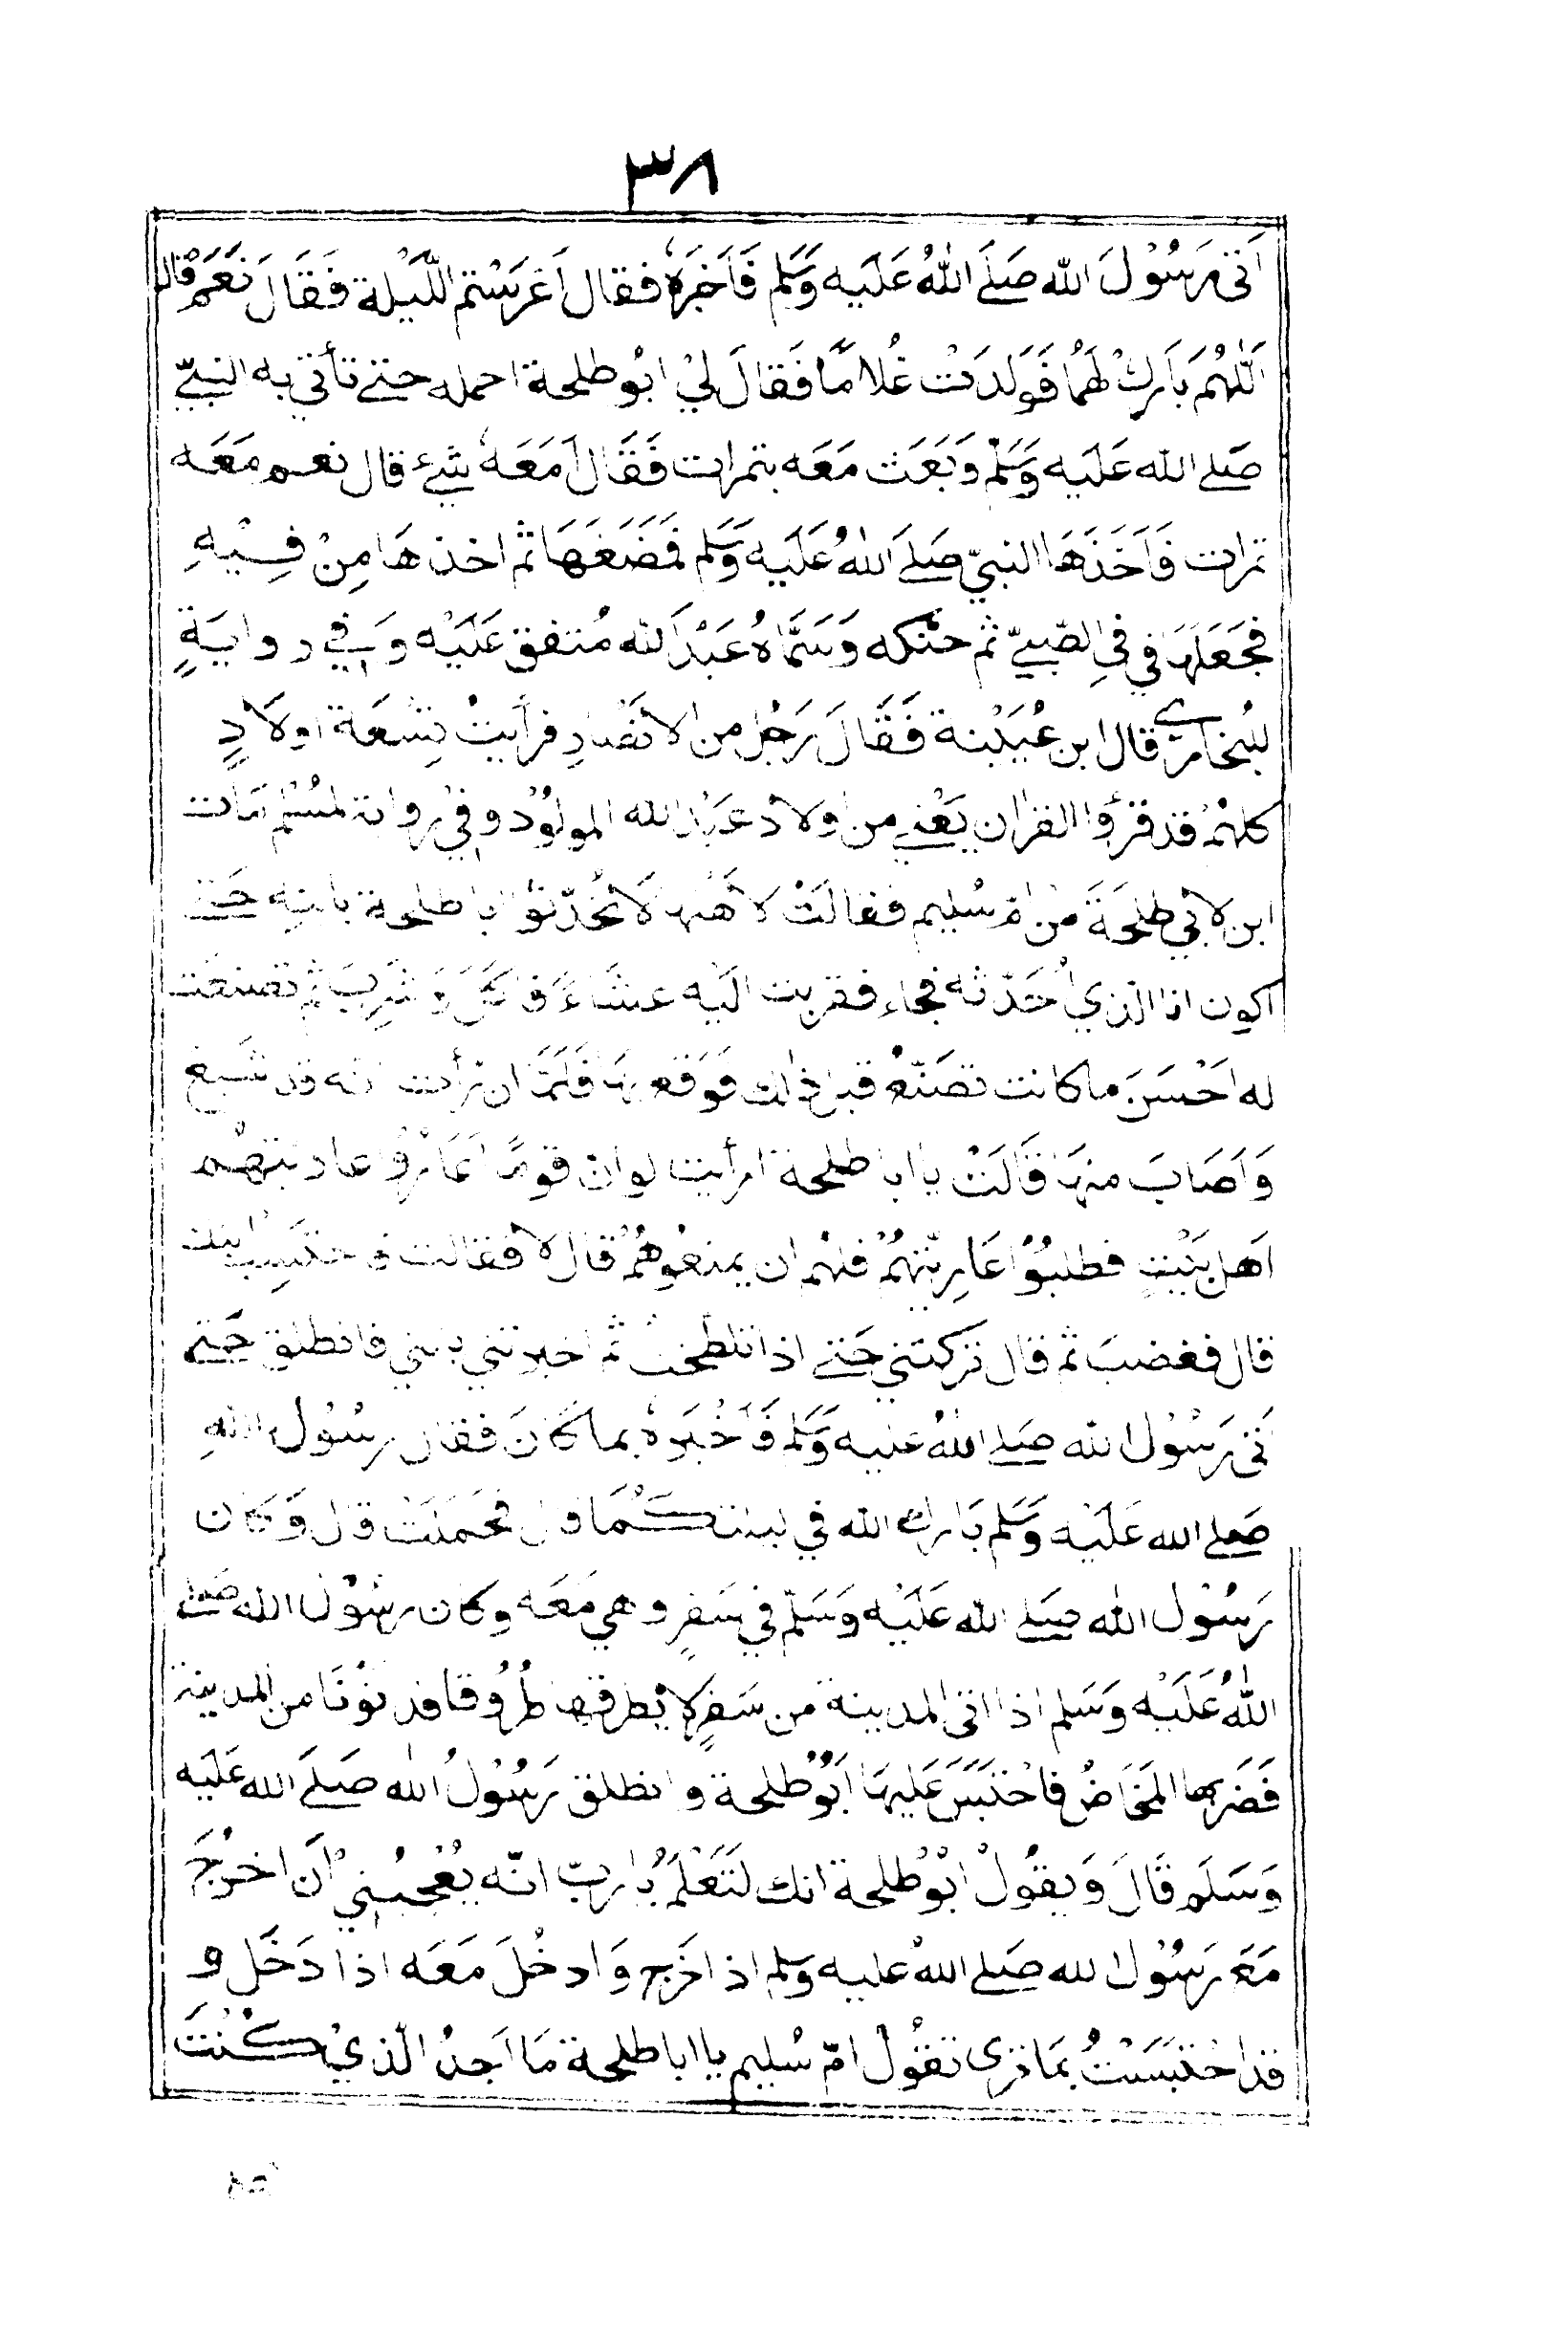 ٣٨
اَتى رَسُوْلَ الله صَلَے اللهُ عَلَيه وَسَلم فَاَخبَرَهُ فقال اَعْرَسْتم اللَّيْلة فَقَالَ نَعَمْ قال
اَللّٰهُمَّ بَارِكْ لَهُمَا فَوَلَدَتْ غُلامًا فَقالَ لِيْ ابُو طلحة احمله حتى تأتي به النبيّ
صَلے الله عَلَيه وَسَلّم وَبَعَث مَعَه بتمرات فَقَال اَمَعَهُ شيء قال نعم مَعَه
تمرات فَاَخَذَهَا النبيّ صَلَے اللهُ عَلَيه وَسَلم فَمَضَغَهَا ثم اخذهَا مِنْ فِيْهِ
فَجَعَلَهَا في فِي الصّبيّ ثم حنّكه وَسَمَّاهُ عَبْدَ الله مُتفق عَلَيْه وَفي روايَةٍ
للبُخاري قال ابن عُيَيْنة فَقَالَ رَجُل من الانْصَارِ فرأيتُ تِسْعَة اولَادٍ
كلهُمْ قد قرؤا القرٰان يَعْنے من اولاد عَبْد الله المولُوْد وفيْ رواية لمسُلم مَات
ابن لابي طلحَةَ من اُم سُليم فقالَتْ لاَهْلهَا لَا تُحَدّثوْا ابا طلحة بابنِه حَتے
اكون انا الّذي اُحَدّثه فجاء فقربت اليَه عشَاءً فاكَلَ وَشَرِبَ ثم تصنعَت
له اَحْسَنَ ما كانت تصَنّعُ قبل ذٰلك فوَقع بهَا فَلَمَّا ان رَأت انه قد شبع
وَاَصَابَ منهَا قَالَتْ يا ابا طلحة ارأيت لو ان قومًا اَعَارُوْا عاريتهُم
اَهل بَيْتٍ فطلبُوْا عَارِيتهُمْ فلهُم ان يمنعُوهُمْ قال لا فقالت فاحتَسِبْ ابنك
قال فغضبَ ثم قال تركتني حَتے اذا تلطختُ ثم اخبرتني بابني فانطلق حَتے
اَتى رَسُوْل الله صَلے اللهُ عليه وَسَلم فَاَخْبَرَهُ بما كَانَ فقال رسُوْل اللهِ
صَلے الله عَلَيْه وَسَلم بَارك الله في ليلتكُمَا قال فحَمَلَتْ قال وَكان
رَسُوْل الله صَلے الله عَلَيْه وَسَلّم في سَفرٍ وهي مَعَه وكان رسُوْل الله صَلے
اللهُ عَلَيْه وَسَلم اذا اتى المدينة من سَفرٍ لا يطرقهَا طُرُوقا فدنوْنَا من المدينة
فَضَرَبهَا المَخَاضُ فاحْتَبَسَ عَليهَا اَبُوْ طلحة وانطلق رَسُوْلُ الله صَلَے الله عَلَيه
وَسَلَم قَالَ وَيقُولْ ابُوْ طلحة انك لتَعْلَمُ يَا ربّ انّه يُعْجبُنِي اَن اخرُجَ
مَعَ رَسُوْل الله صَلے اللهُ عليه وَسَلم اذا خَرج وَادخُلَ مَعَه اذا دَخَل و
قد احْتَبَسْتُ بمَا ترى تقوُل امّ سُليم يا ابا طلحة مَا اَجدُ الّذيْ كُنْتَ